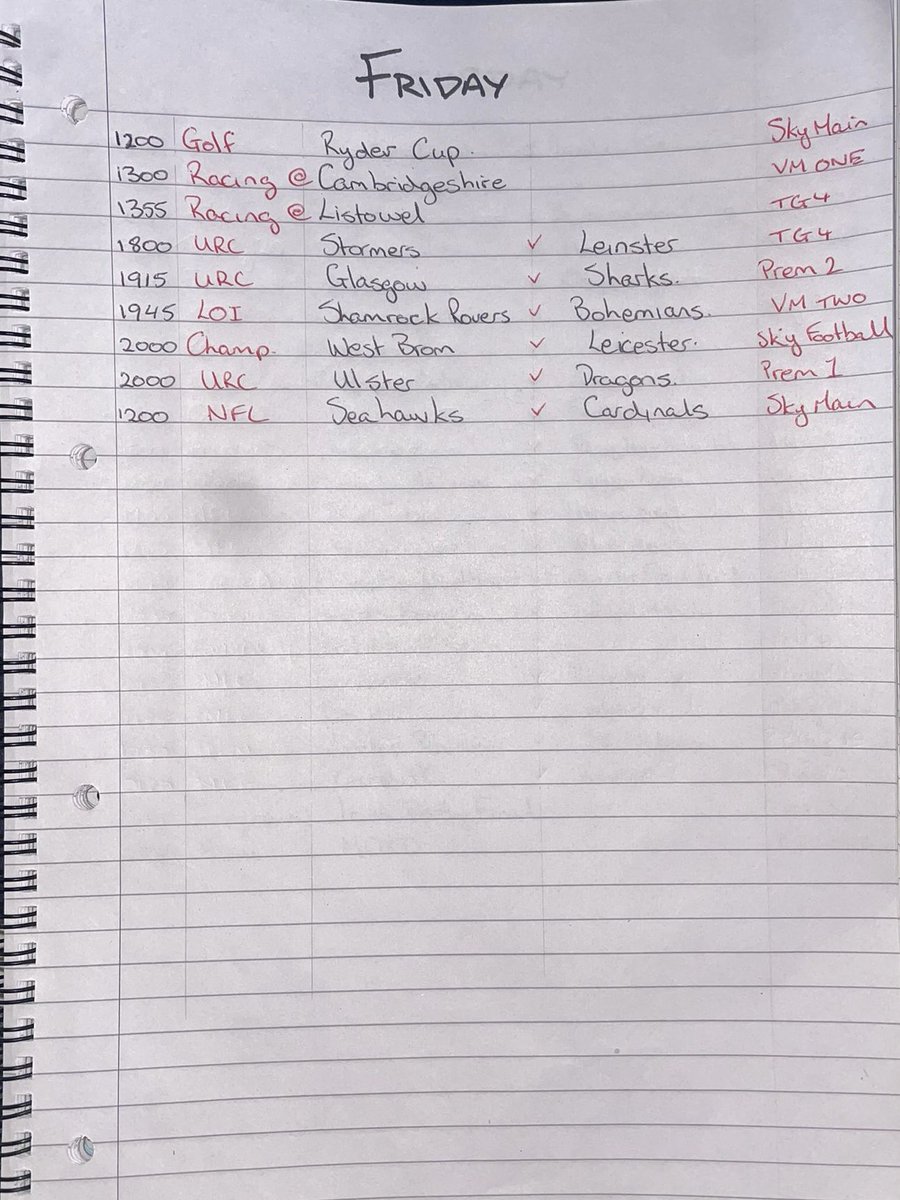 FRIDAY
1200 Golf Ryder Cup. Sky Main
1300 Racing @ Cambridgeshire VM ONE
1355 Racing @ Listowel TG4
1800 URC Stormers v Leinster TG4
1915 URC Glasgow v Sharks. Prem 2
1945 LOI Shamrock Rovers v Bohemians. VM TWO
2000 Champ. West Brom v Leicester. Sky Football
2000 URC Ulster v Dragons. Prem 1
1200 NFL Seahawks v Cardinals Sky Main